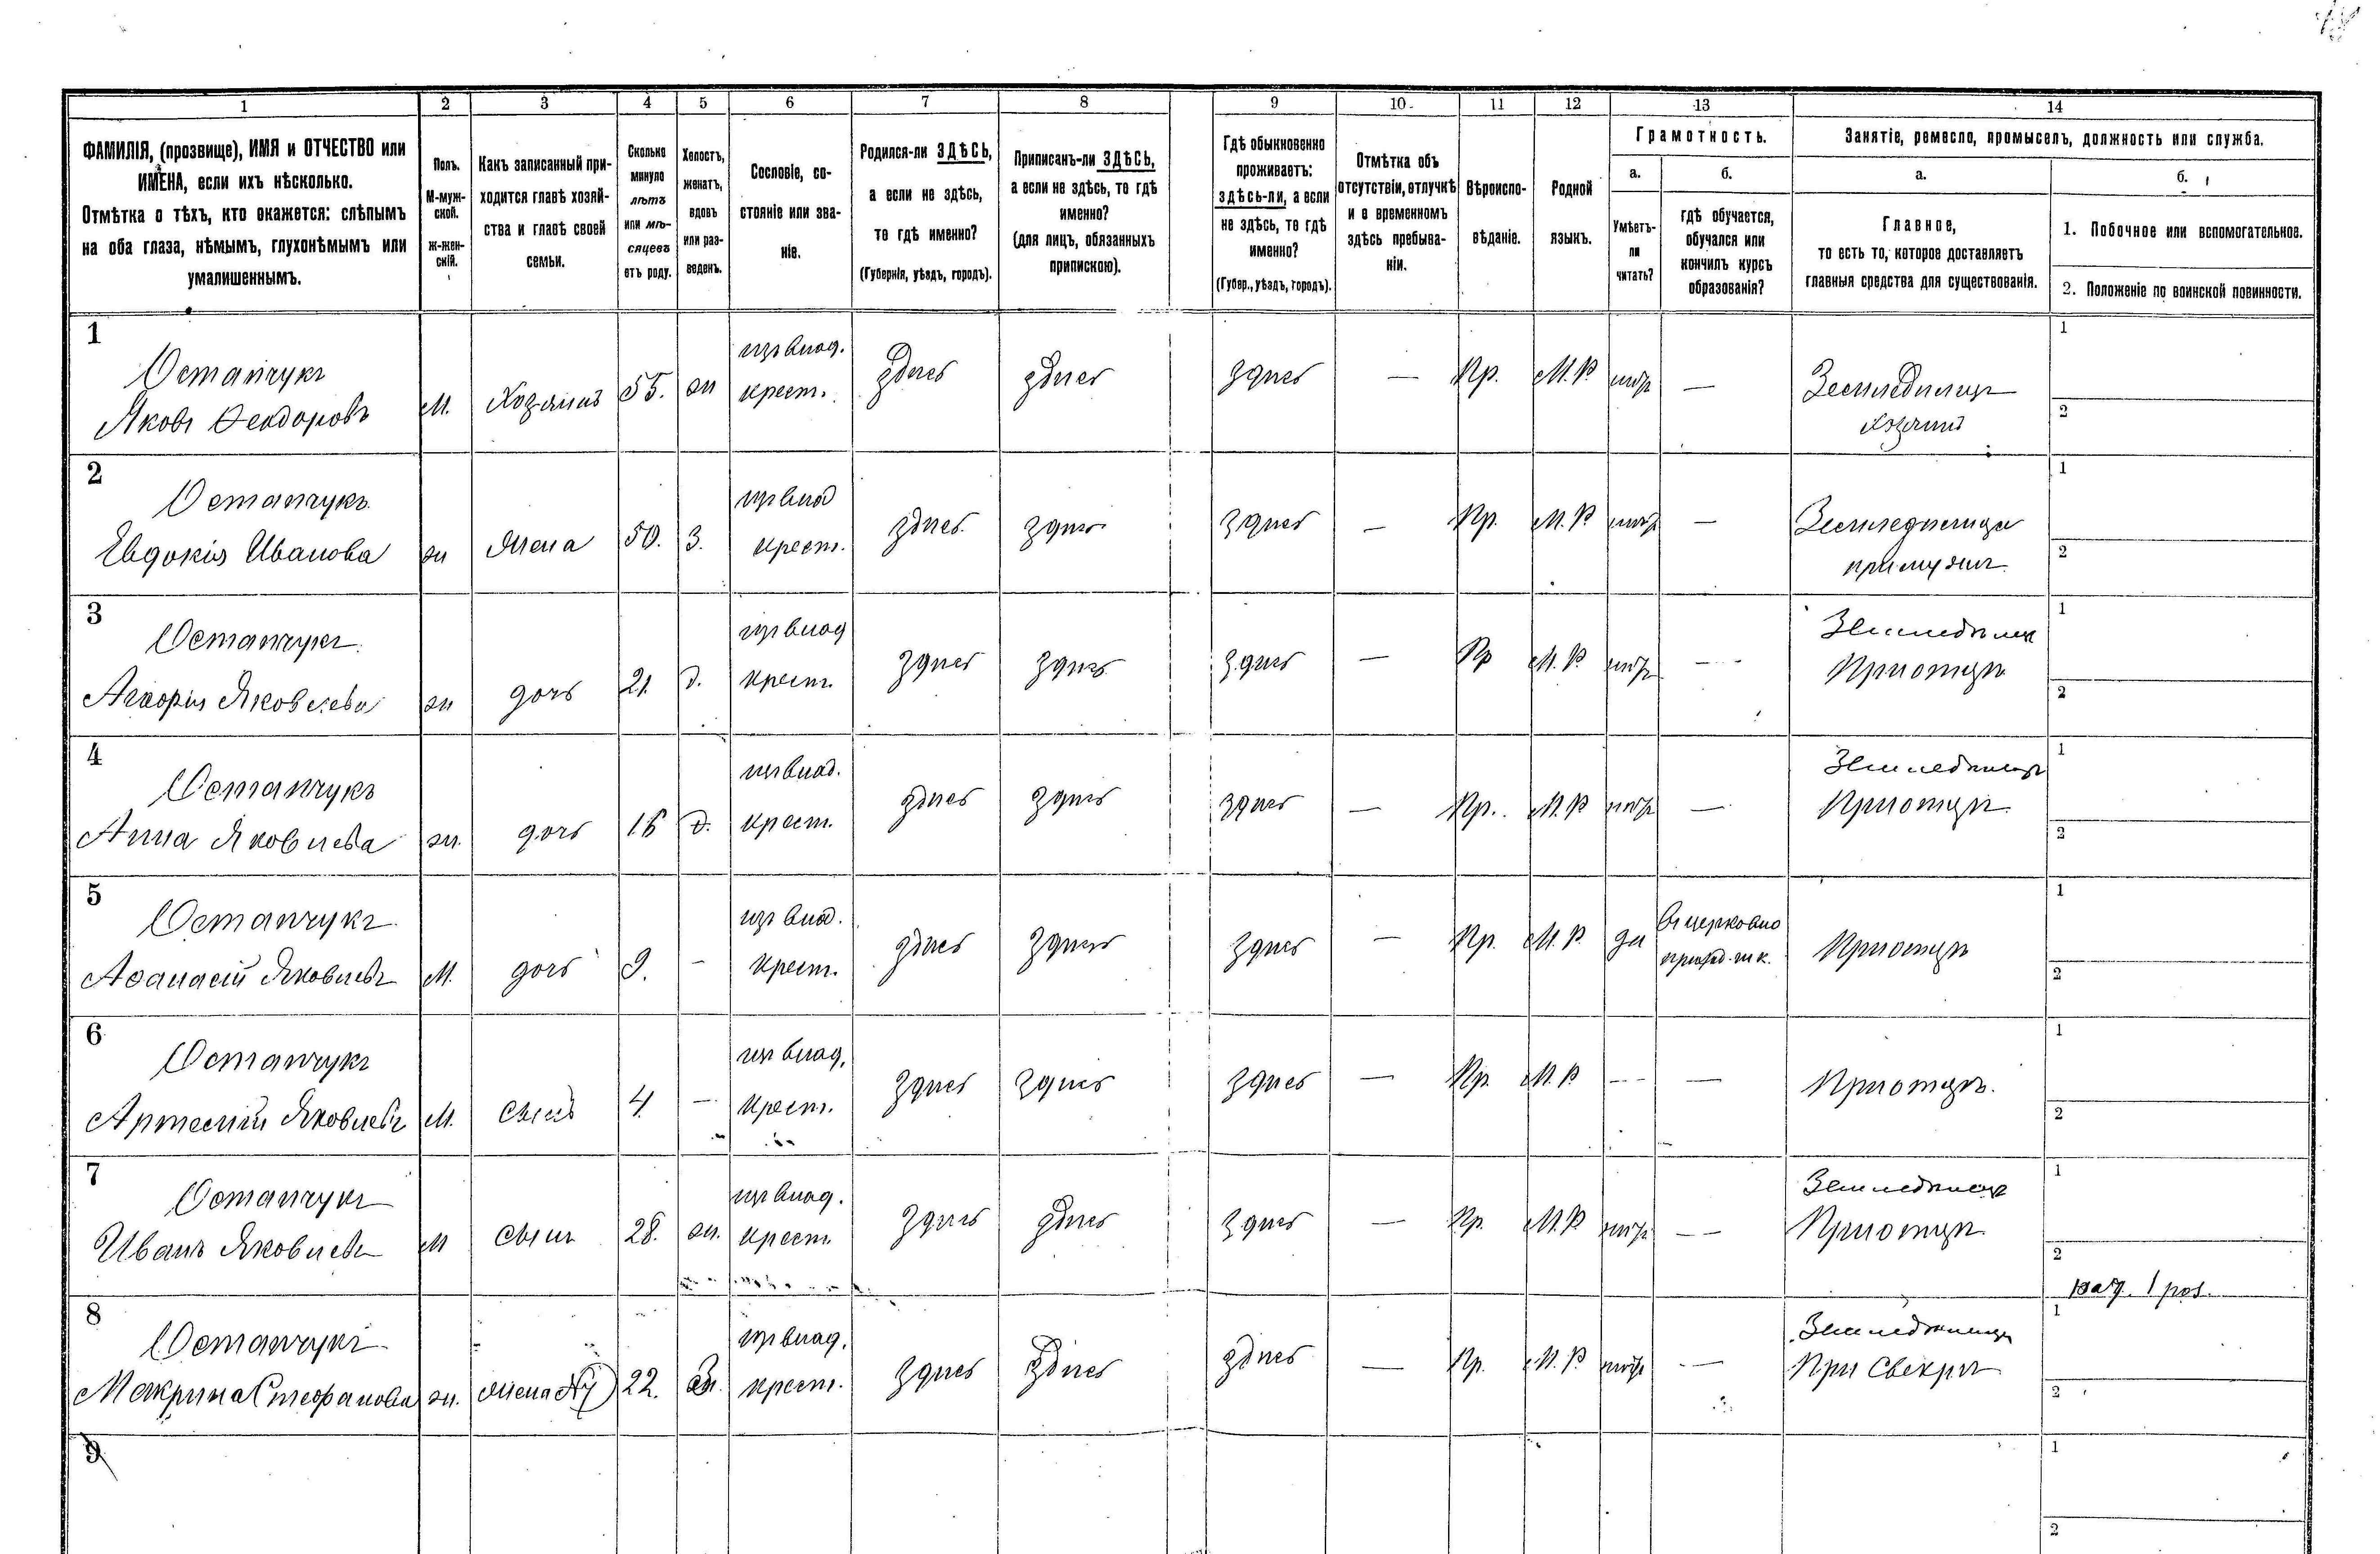 1 2 3 4 5 6 7 8 9 10. 11 12 13 14
ФАМИЛІЯ, (прозвище), ИМЯ и ОТЧЕСТВО или
ИМЕНА, если ихъ нѣсколько.
Отмѣтка о тѣхъ, кто окажется: слѣпымъ
на оба глаза, нѣмымъ, глухонѣмымъ или
умалишеннымъ.
Полъ.
М-муж-
ской.
ж-жен-
скій.
Какъ записанный при-
ходится главѣ хозяй-
ства и главѣ своей
семьи.
Сколько
минуло
лѣтъ
или мѣ-
сяцевъ
отъ роду.
Холостъ,
женатъ,
вдовъ
или раз-
веденъ.
Сословіе, со-
стояніе или зва-
ніе.
Родился-ли ЗДѢСЬ,
а если не здѣсь,
то гдѣ именно?
(Губернія, уѣздъ, городъ).
Приписанъ-ли ЗДѢСЬ,
а если не здѣсь, то гдѣ
именно?
(для лицъ, обязанныхъ
припискою).
Гдѣ обыкновенно
проживаетъ:
здѣсь-ли, а если
не здѣсь, то гдѣ
именно?
(Губер., уѣздъ, городъ).
Отмѣтка объ
отсутствіи, отлучкѣ
и о временномъ
здѣсь пребыва-
ніи.
Вѣроиспо-
вѣданіе.
Родной
языкъ.
Грамотность.
а.
Умѣетъ-
ли
читать?
б.
гдѣ обучается,
обучался или
кончилъ курсъ
образованія?
Занятіе, ремесло, промыселъ, должность или служба.
а.
Главное,
то есть то, которое доставляетъ
главныя средства для существованія.
б.
1. Побочное или вспомогательное.
2. Положеніе по воинской повинности.
1
Остапчукъ
Яковъ Феодоровъ
М. Хозяинъ 55. ж
изъ влад.
крест.
здѣсь здѣсь здѣсь — Пр. М.Р. нѣтъ —
Земледѣлецъ
хозяинъ
1
2
2
Остапчукъ
Евдокія Иванова
ж жена 50. З.
изъ влад
крест.
здѣсь здѣсь здѣсь — Пр. М.Р. нѣтъ —
Земледѣлица
при мужѣ
1
2
3
Остапчукъ
Яковлева
ж дочь 21. д.
изъ влад
крест.
здѣсь здѣсь здѣсь — Пр М.Р. нѣтъ —
При отцѣ
1
2
4
Остапчукъ
Анна Яковлева
ж. дочь 16 д.
изъ влад.
крест.
здѣсь здѣсь здѣсь — Пр. М.Р нѣтъ —
При отцѣ
1
2
5
Остапчукъ
Афанасій Яковлевъ
М. дочь 9. -
изъ влад.
крест.
здѣсь здѣсь здѣсь — Пр. М.Р. да
въ церковно
приход. шк.
При отцѣ
1
2
6
Остапчукъ
Артемій Яковлевъ
М. сынъ 4 —
изъ влад.
крест.
здѣсь здѣсь здѣсь — Пр. М.Р — —
При отцѣ.
1
2
7
Остапчукъ
Иванъ Яковлевъ
М сынъ 28. ж.
изъ влад.
крест
здѣсь здѣсь здѣсь — Пр. М.Р нѣтъ —
При отцѣ
1
2
раз.
8
Остапчукъ
Макрина Стефанова
ж. жена №7 22. З.
изъ влад.
крест.
здѣсь здѣсь здѣсь — Пр. М.Р нѣтъ —
При свекрѣ
1
2
9
1
2